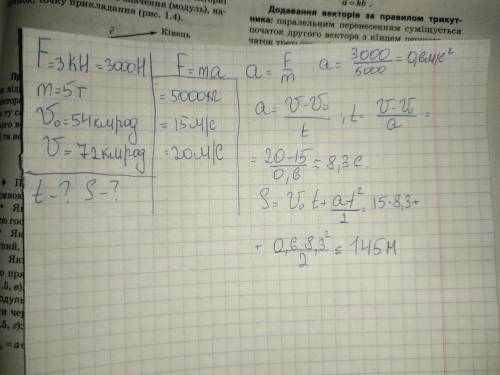 ачення (модуль), на-
точку прикладання (рис. 1.4).
Кінець
a = kb .
Додавання векторів за правилом трикут-
ника: паралельним перенесенням суміщується
початок другого вектора з кінцем
F=3кН=3000Н
m=5т
V₀=54кмрод
V=72кмрод
t-? S-?
=5000кг
=15м/с
=20м/с
F=ma
a=F/m a=3000/5000=0,6м/с²
a=(V-V₀)/t, t=(V-V₀)/a=
=(20-15)/0,6=8,3с.
S=V₀t+at²/2=15·8,3+
+0,6·8,3²/2=145м